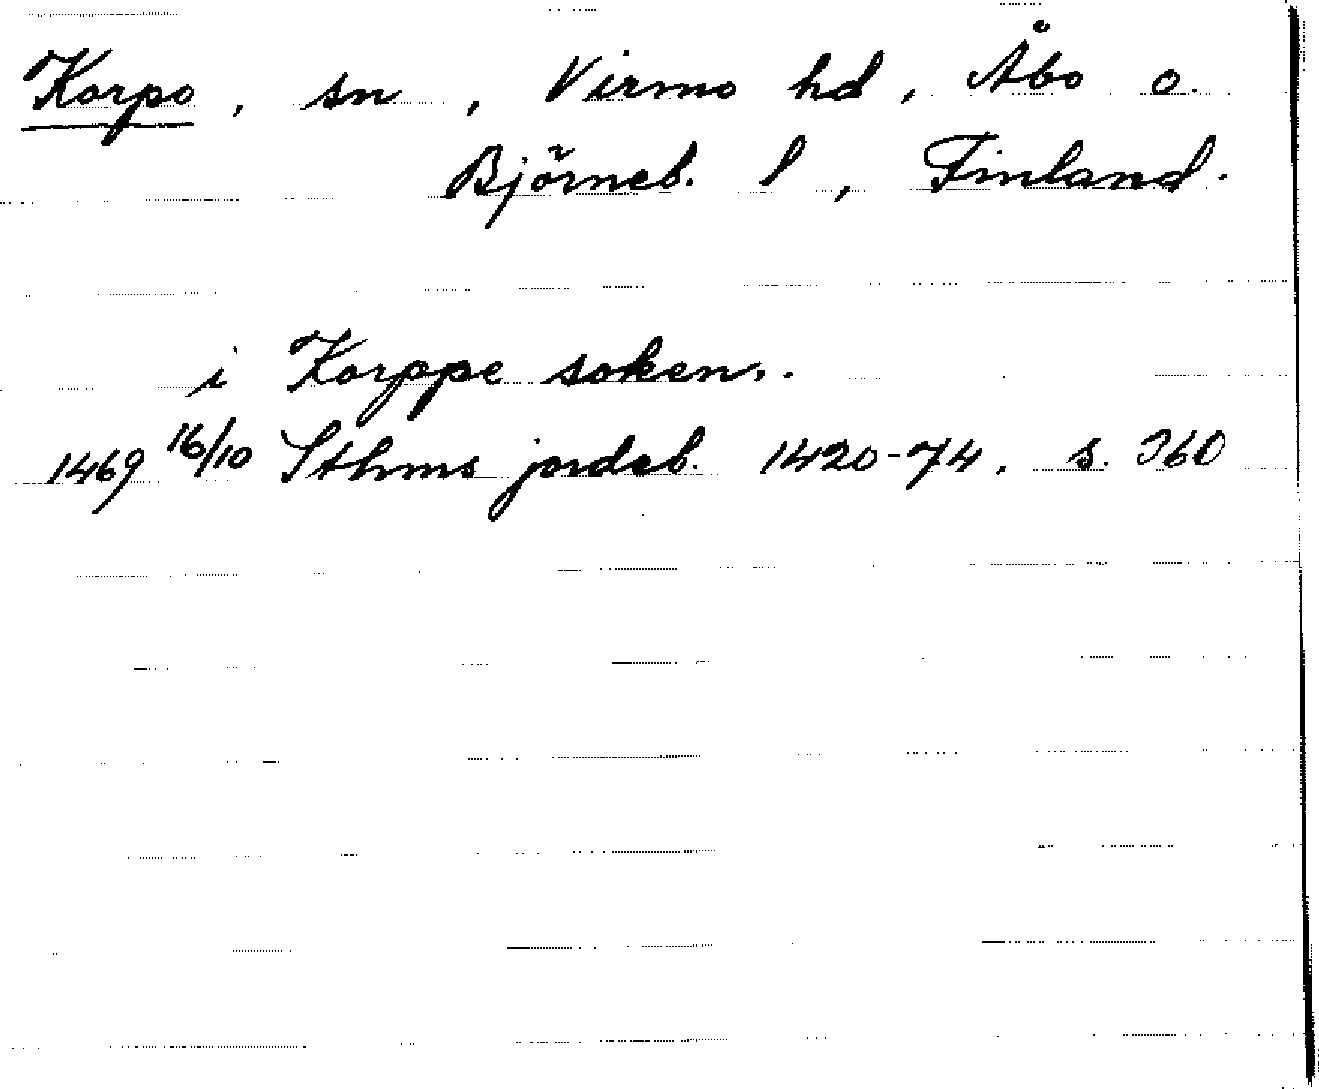 Korpo, sn, Virmo hd, Åbo o.
Björneb. l, Finland.
i Korppe soken.
1469 16/10 Sthms jordeb. 1420-74, s. 360